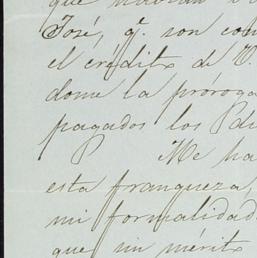 que
José, qe. son con
el crédito de V.
dome la próroga
pagados los
P Me ha
esta franqueza,
mi formalidad
que un mérito